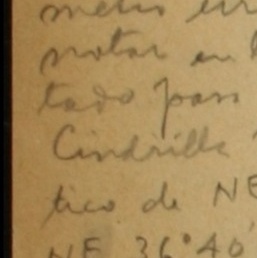 metro
notar en
tado para
Cindrilla
tico de NE
NE 36°40'